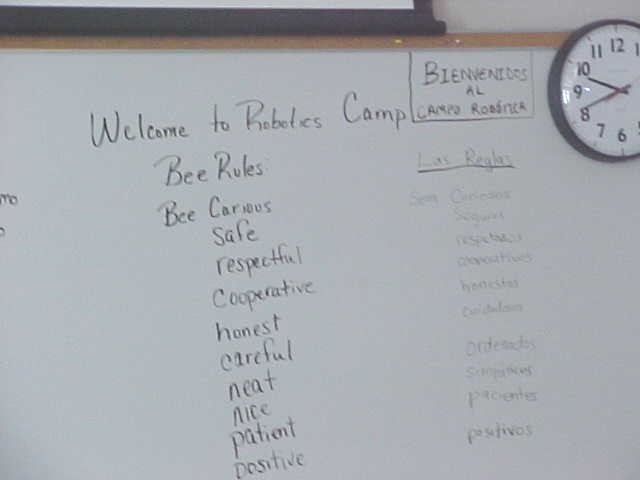 Welcome to Robotics Camp
Bee Rules:
Bee Carious
safe
respectful
Cooperative
honest
careful
neat
nice
patient
positive
BIENVENIDOS
AL
CAMPO ROBÓTICA
Las Reglas
Sean Curiosos
Seguros
respetuosos
cooperativos
honestos
cuidadosos
ordenados
simpáticos
pacientes
positivos
mo
o
11 12 1
10
9
8
7 6